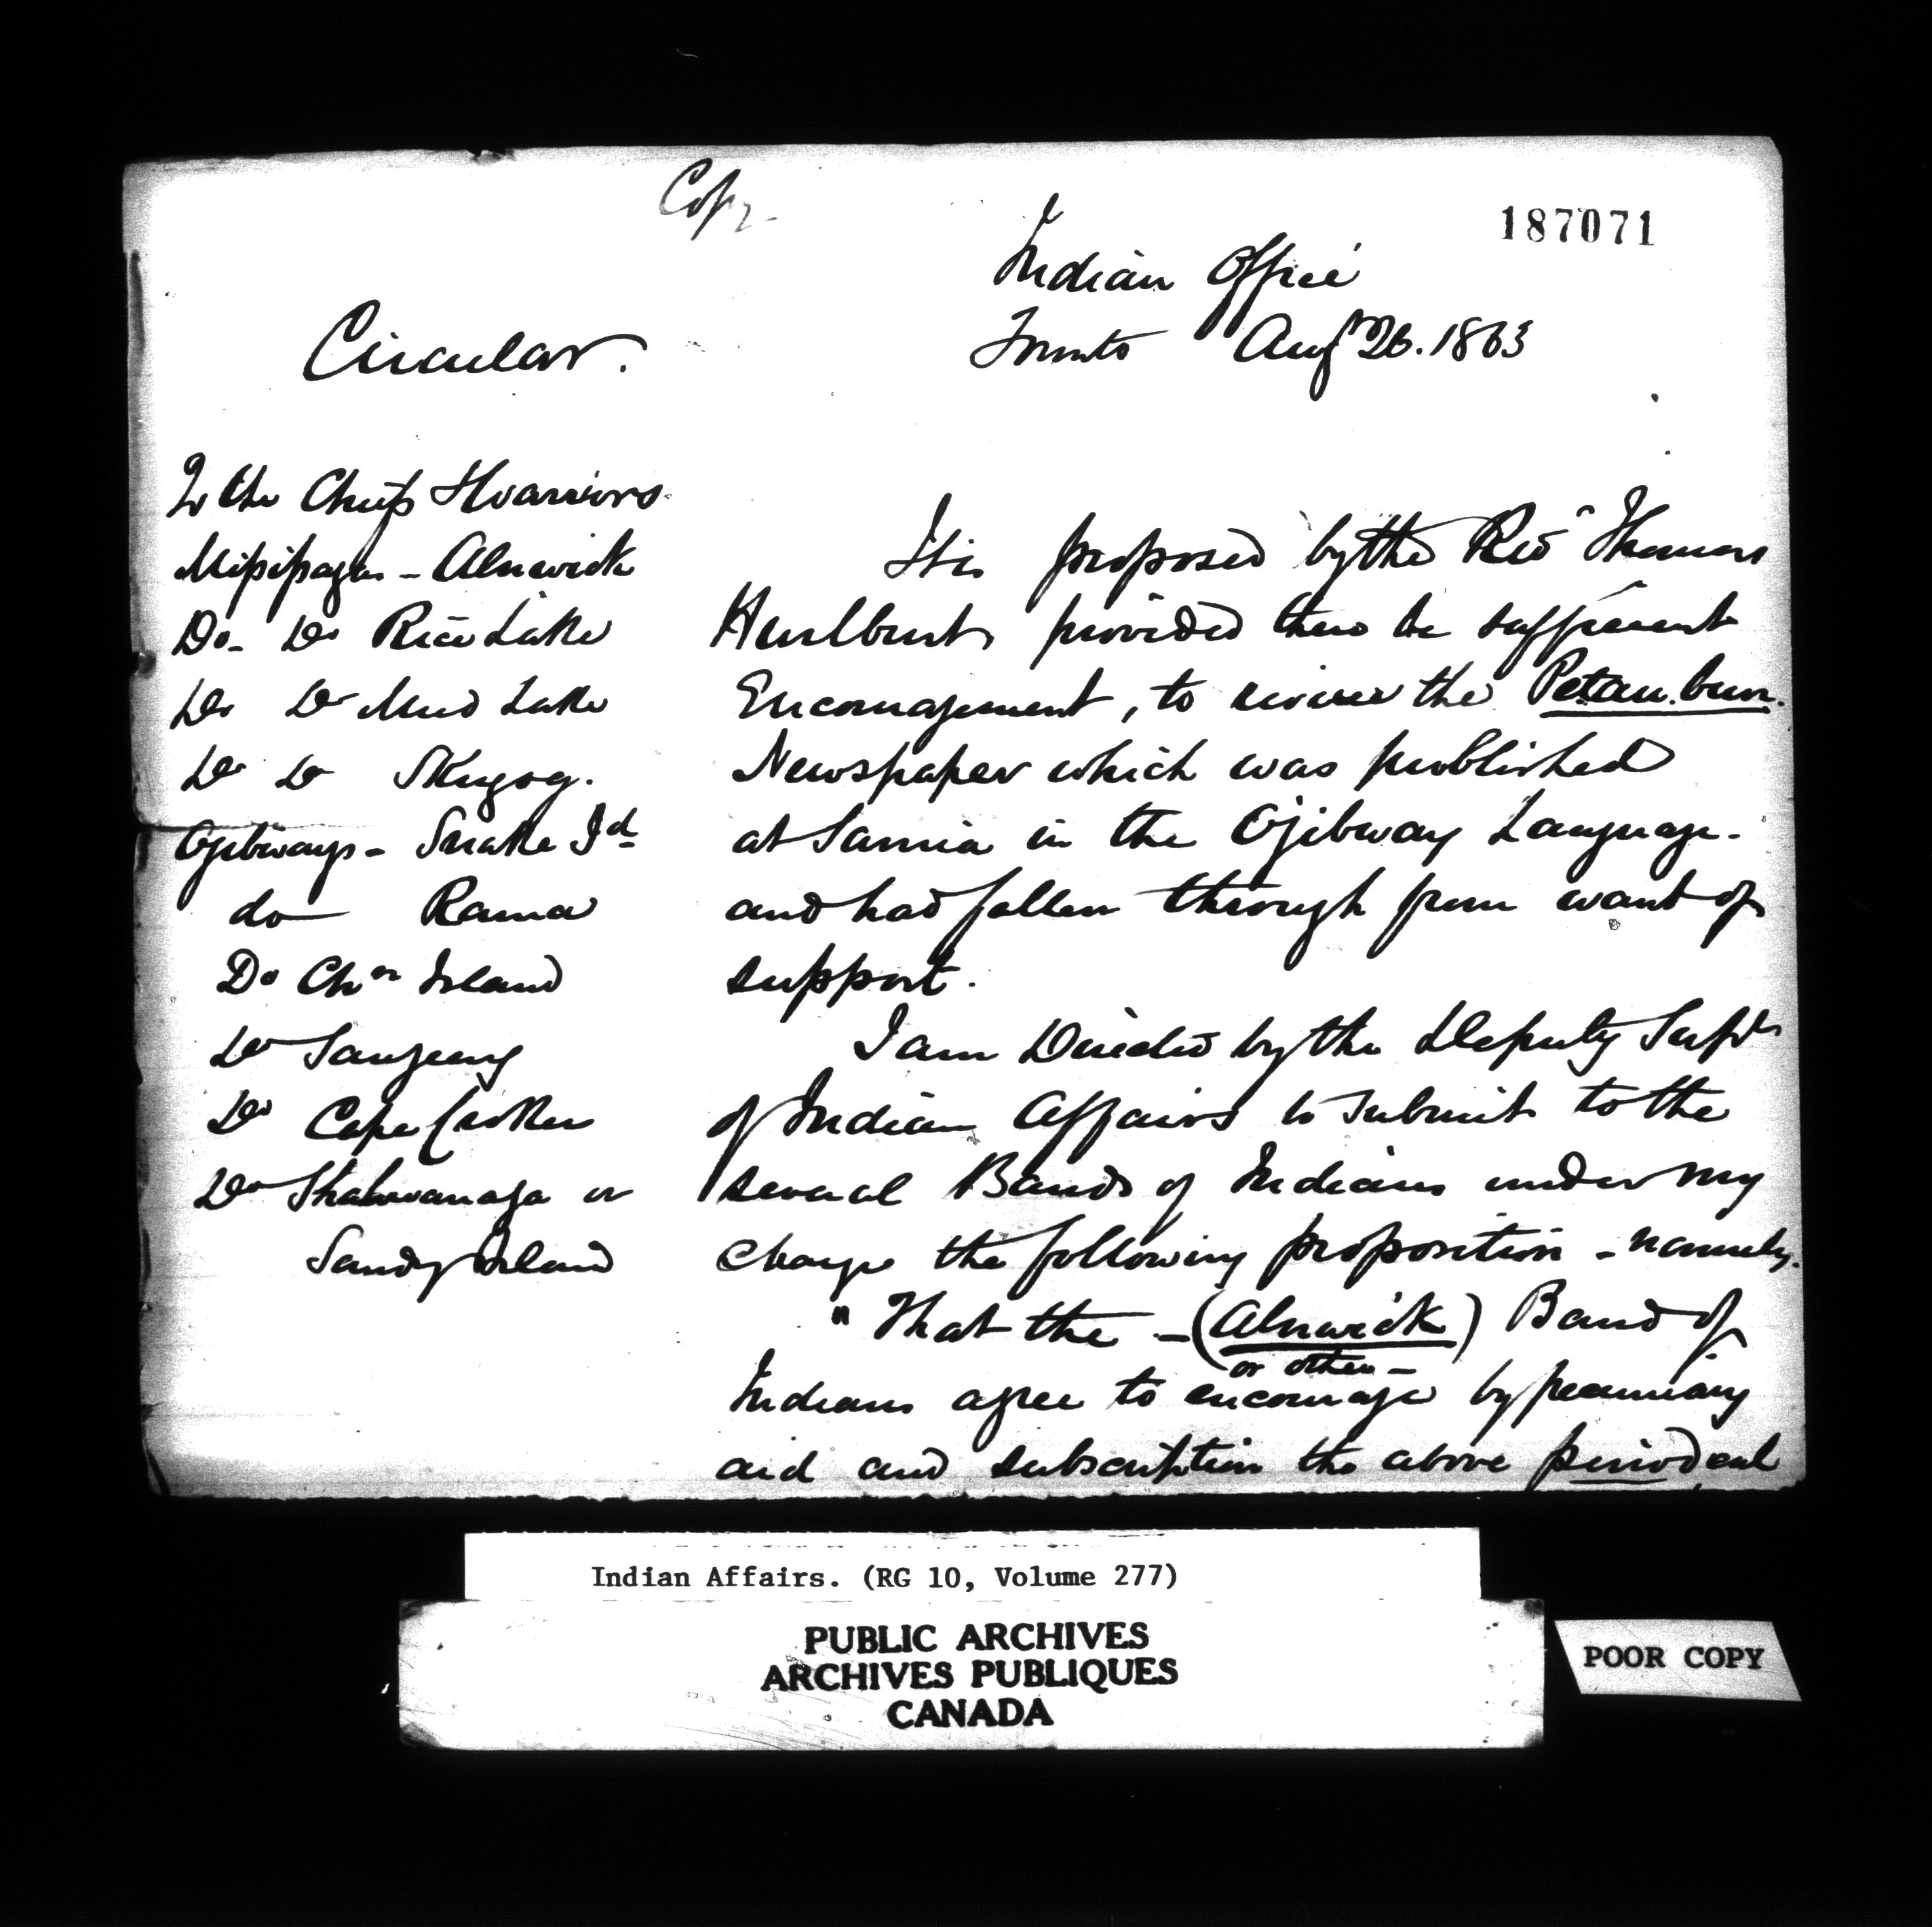 Copy
187071
Indian Office
Toronto Augt 26. 1863
Circular.
To the Chiefs & Warriors
Missisagas - Alnwick
Do. Do Rice Lake
Do Do Mud Lake
Do Do Skugog.
Ojibways - Snake Id
do Rama
Do Chn Island
Do Saugeeng
Do Cape Croker
Do Shahwanaga or
Sandy Island
It is proposed by the Revd Thomas
Hurlburt, provided there be sufficient
Encouragement, to revive the Petau.bun.
Newspaper which was published
at Sarnia in the Ojibway Language.
and had fallen through from want of
support.
I am Directed by the Deputy Supt
of Indian Affairs to submit to the
several Bands of Indians under my
charge the following proposition - namely.
"That the - (Alnwick) Band of
or other -
Indians agree to encourage by pecuniary
aid and subscription the above periodical
Indian Affairs. (RG 10, Volume 277)
PUBLIC ARCHIVES
ARCHIVES PUBLIQUES
CANADA
POOR COPY